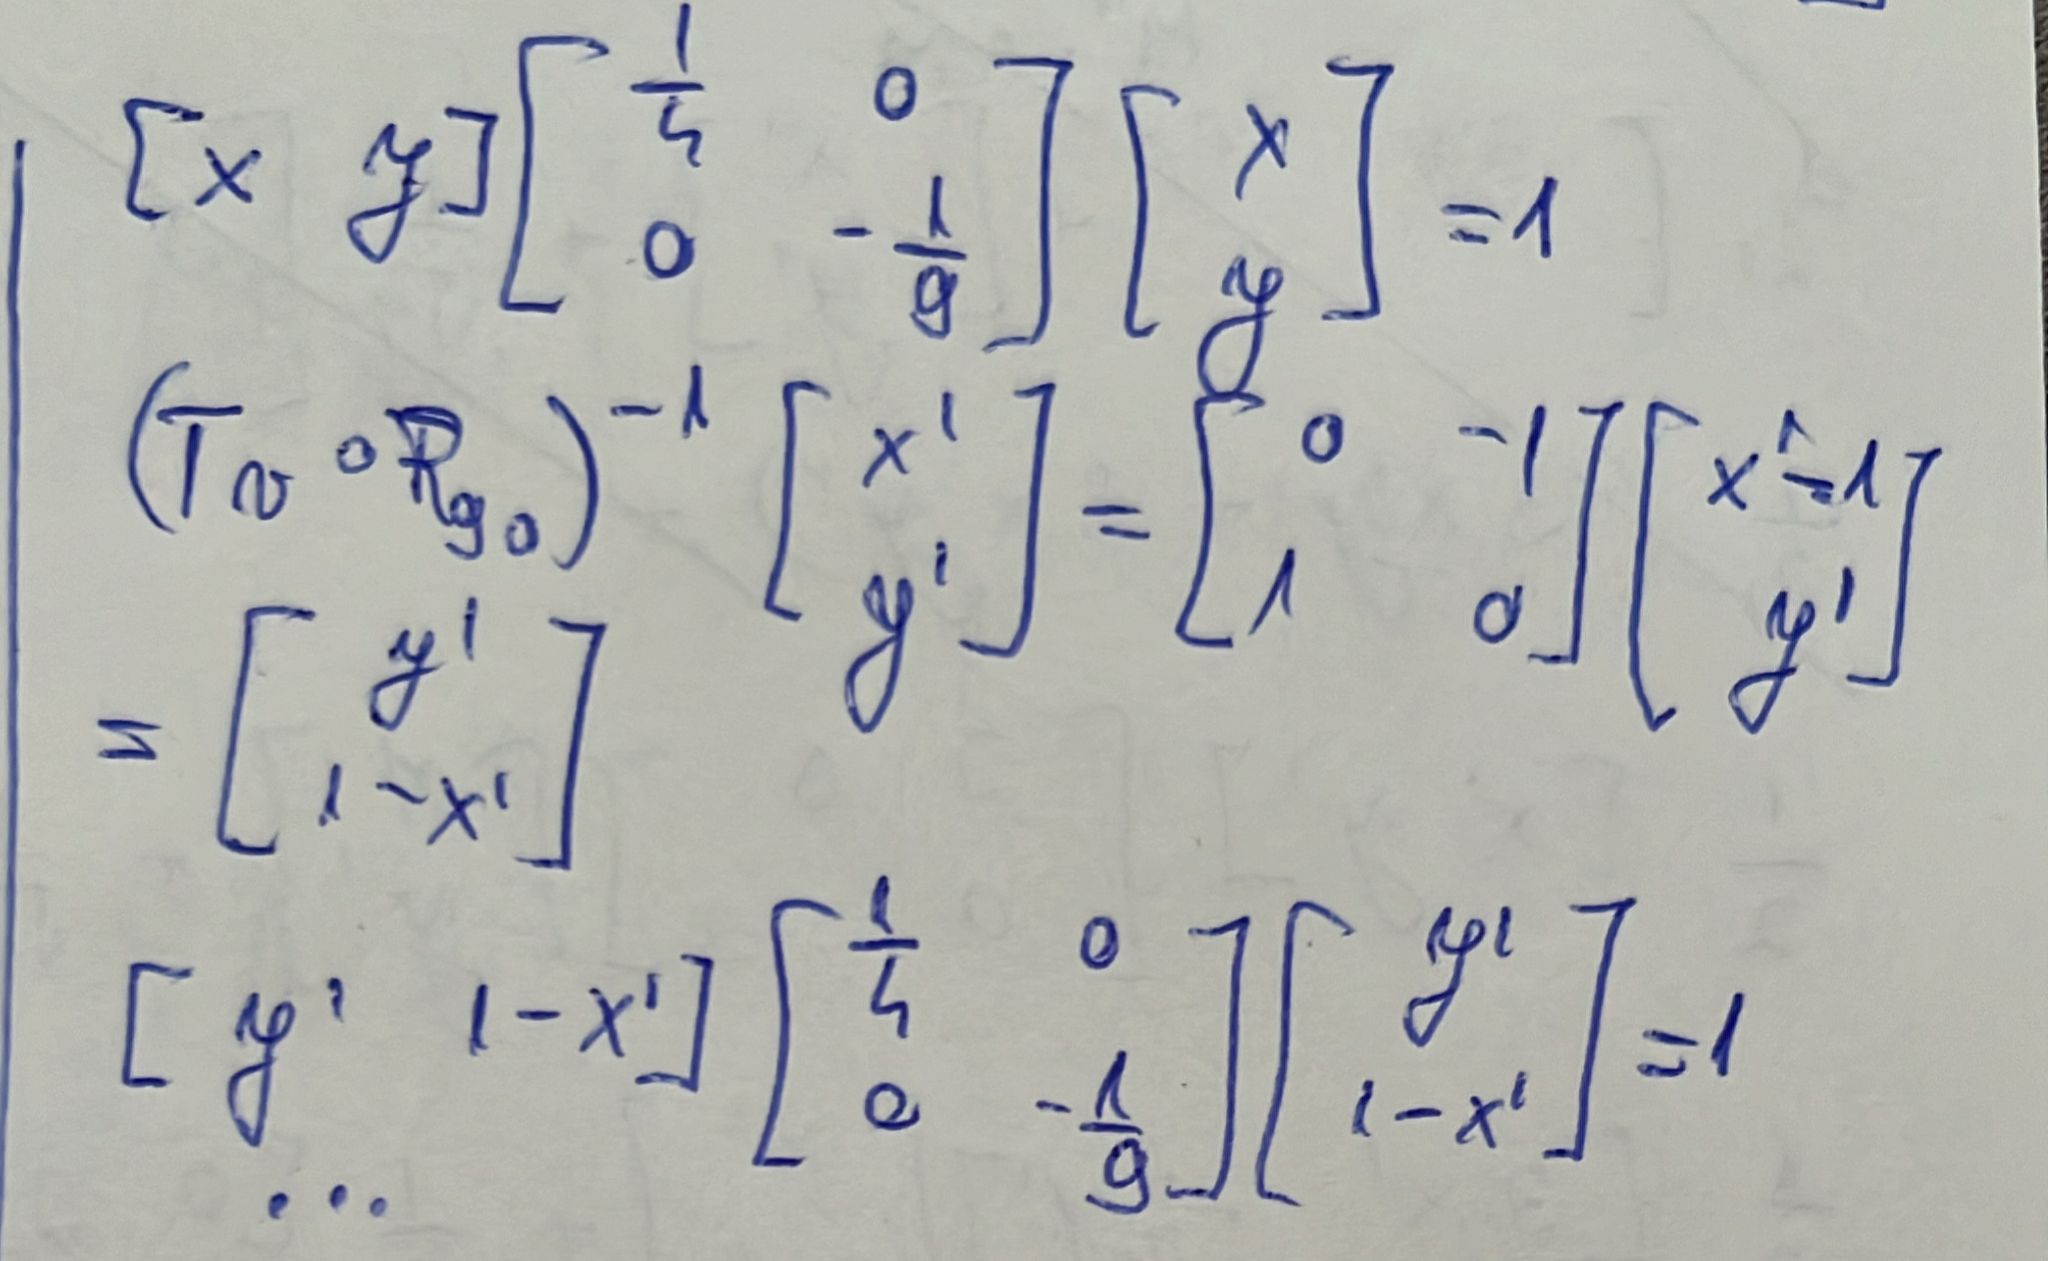 [x y] [1/4 0; 0 -1/9] [x; y] = 1
(T_v ∘ R_90)^-1 [x'; y'] = [0 -1; 1 0] [x'-1; y']
= [y'; 1-x']
[y' 1-x'] [1/4 0; 0 -1/9] [y'; 1-x'] = 1
...